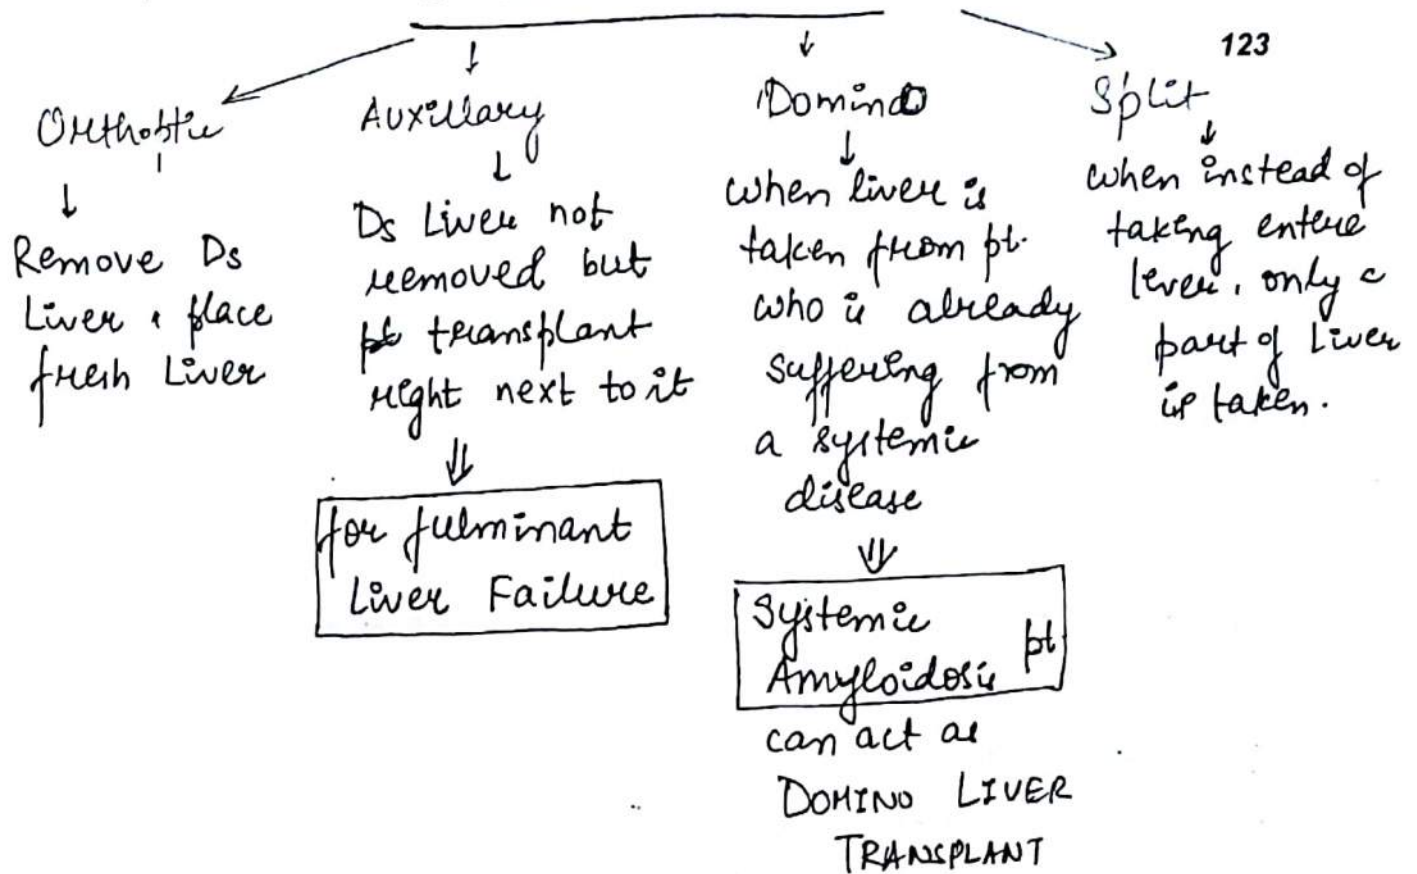 123
Orthobtic
↓
Remove Ds
Liver & place
fresh Liver
Auxillary
↓
Ds Liver not
removed but
transplant
right next to it
⇓
for fulminant
Liver Failure
Domino
↓
when liver is
taken from pt.
who is already
suffering from
a systemic
disease
⇓
Systemic
Amyloidosis pt
can act as
DOMINO LIVER
TRANSPLANT
Split
↓
when instead of
taking entere
lever, only a
part of Liver
is taken.